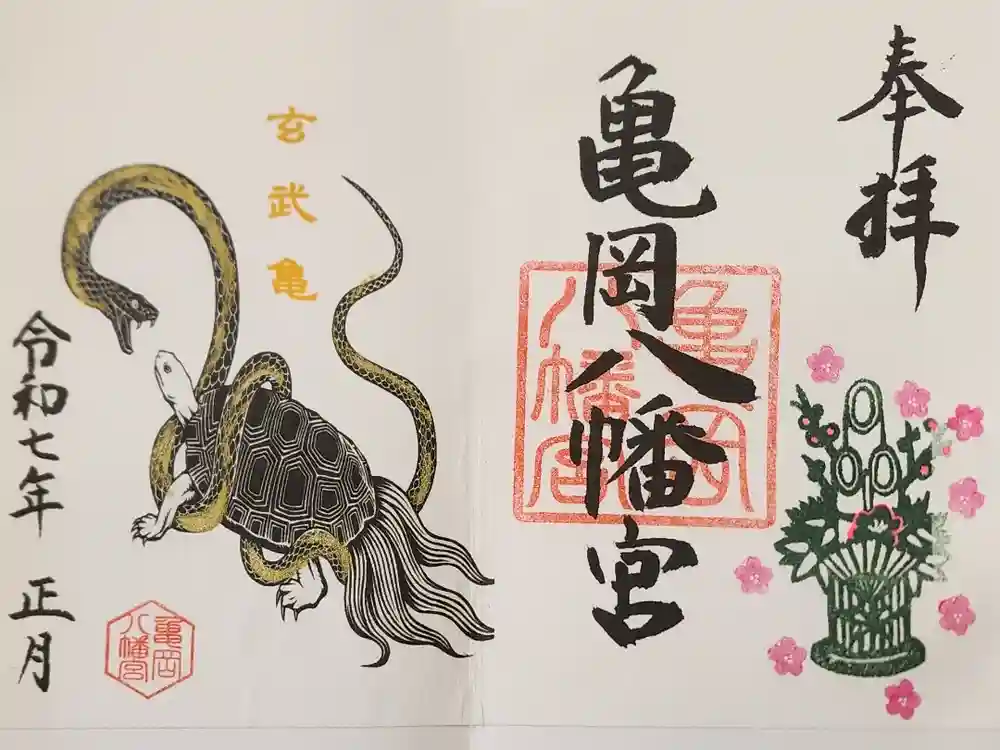 奉拝
亀岡八幡宮
亀岡
八幡宮
玄武亀
令和七年 正月
亀岡
八幡宮